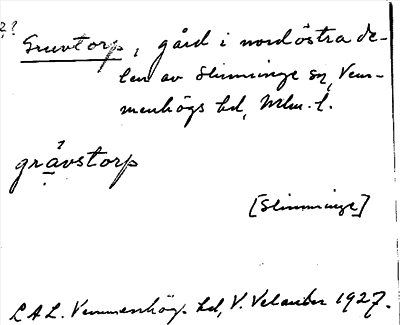 ??
Gruvtorp, gård i nordöstra de-
len av Slimminge sn, Vem-
menhögs hd, Mlm. l.
gråvstorp
[Slimminge]
LAL. Vemmenhögs hd, V. Velander 1927.